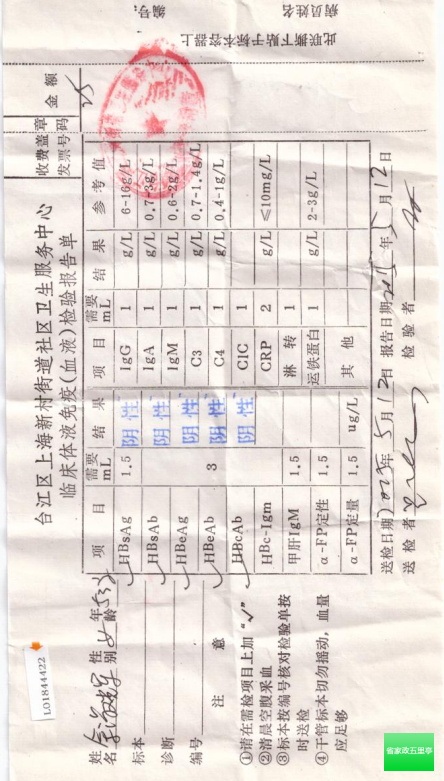 台江区上海新村街道社区卫生服务中心
临床体液免疫(血液)检验报告单
收费盖章
发票号码
金额
姓名
性别 女
年龄
标本
诊断
编号
注意
①请在需检项目上加“√”
②清晨空腹采血
③标本按编号核对检验单按时送检
④干管标本切勿摇动，血量应足够
项目 需要mL 结果 项目 需要mL 结果 参考值
HBsAg 1.5 阴性 IgG 1 g/L 6-16g/L
HBsAb 阴性 IgA 1 g/L 0.7-3g/L
HBeAg 阴性 IgM 1 g/L 0.6-2g/L
HBeAb 3 阴性 C3 1 g/L 0.7-1.4g/L
HBcAb 阴性 C4 1 g/L 0.4-1g/L
HBc-Igm CIC 1
甲肝IgM 1.5 CRP 2 g/L ≤10mg/L
α-FP定性 1.5 淋转 1
α-FP定量 1.5 ug/L 运铁蛋白 1 g/L 2-3g/L
其他
送检日期 2015年5月12日 报告日期 年5月12日
送检者 检验者
L01844422
此联撕下贴于标本容器上
编号：
病员姓名
省家政五里亭